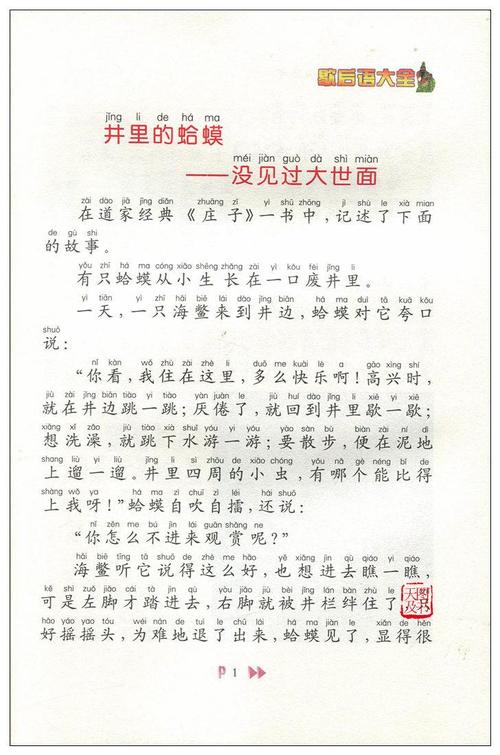 歇后语大全
jǐng li de há ma
井里的蛤蟆
méi jiàn guò dà shì miàn
——没见过大世面
zài dào jiā jīng diǎn zhuāng zǐ yì shū zhōng jì shù le xià mian
在道家经典《庄子》一书中，记述了下面
de gù shi
的故事。
yǒu zhī há ma cóng xiǎo shēng zhǎng zài yì kǒu fèi jǐng li
有只蛤蟆从小生长在一口废井里。
yì tiān yì zhī hǎi biē lái dào jǐng biān há ma duì tā kuā kǒu
一天，一只海鳖来到井边，蛤蟆对它夸口
shuō
说：
nǐ kàn wǒ zhù zài zhè li duō me kuài lè a gāo xìng shí
“你看，我住在这里，多么快乐啊！高兴时，
jiù zài jǐng biān tiào yí tiào yàn juàn le jiù huí dào jǐng li xiē yi xiē
就在井边跳一跳；厌倦了，就回到井里歇一歇；
xiǎng xǐ zǎo jiù tiào xià shuǐ yóu yi yóu yào sàn bù biàn zài ní dì
想洗澡，就跳下水游一游；要散步，便在泥地
shang liù yi liù jǐng li sì zhōu de xiǎo chóng yǒu nǎ gè néng bǐ de
上遛一遛。井里四周的小虫，有哪个能比得
shàng wǒ ya há ma zì chuī zì léi hái shuō
上我呀！”蛤蟆自吹自擂，还说：
nǐ zěn me bú jìn lái guān shǎng ne
“你怎么不进来观赏呢？”
hǎi biē tīng tā shuō de zhè me hǎo yě xiǎng jìn qù qiáo yi qiáo
海鳖听它说得这么好，也想进去瞧一瞧，
kě shì zuǒ jiǎo cái tà jìn qù yòu jiǎo jiù bèi jǐng lán bàn zhù le
可是左脚才踏进去，右脚就被井栏绊住了
hǎo yáo yáo tóu wéi nán de tuì le chū lái há ma jiàn le xiǎn de hěn
好摇摇头，为难地退了出来，蛤蟆见了，显得很
P 1